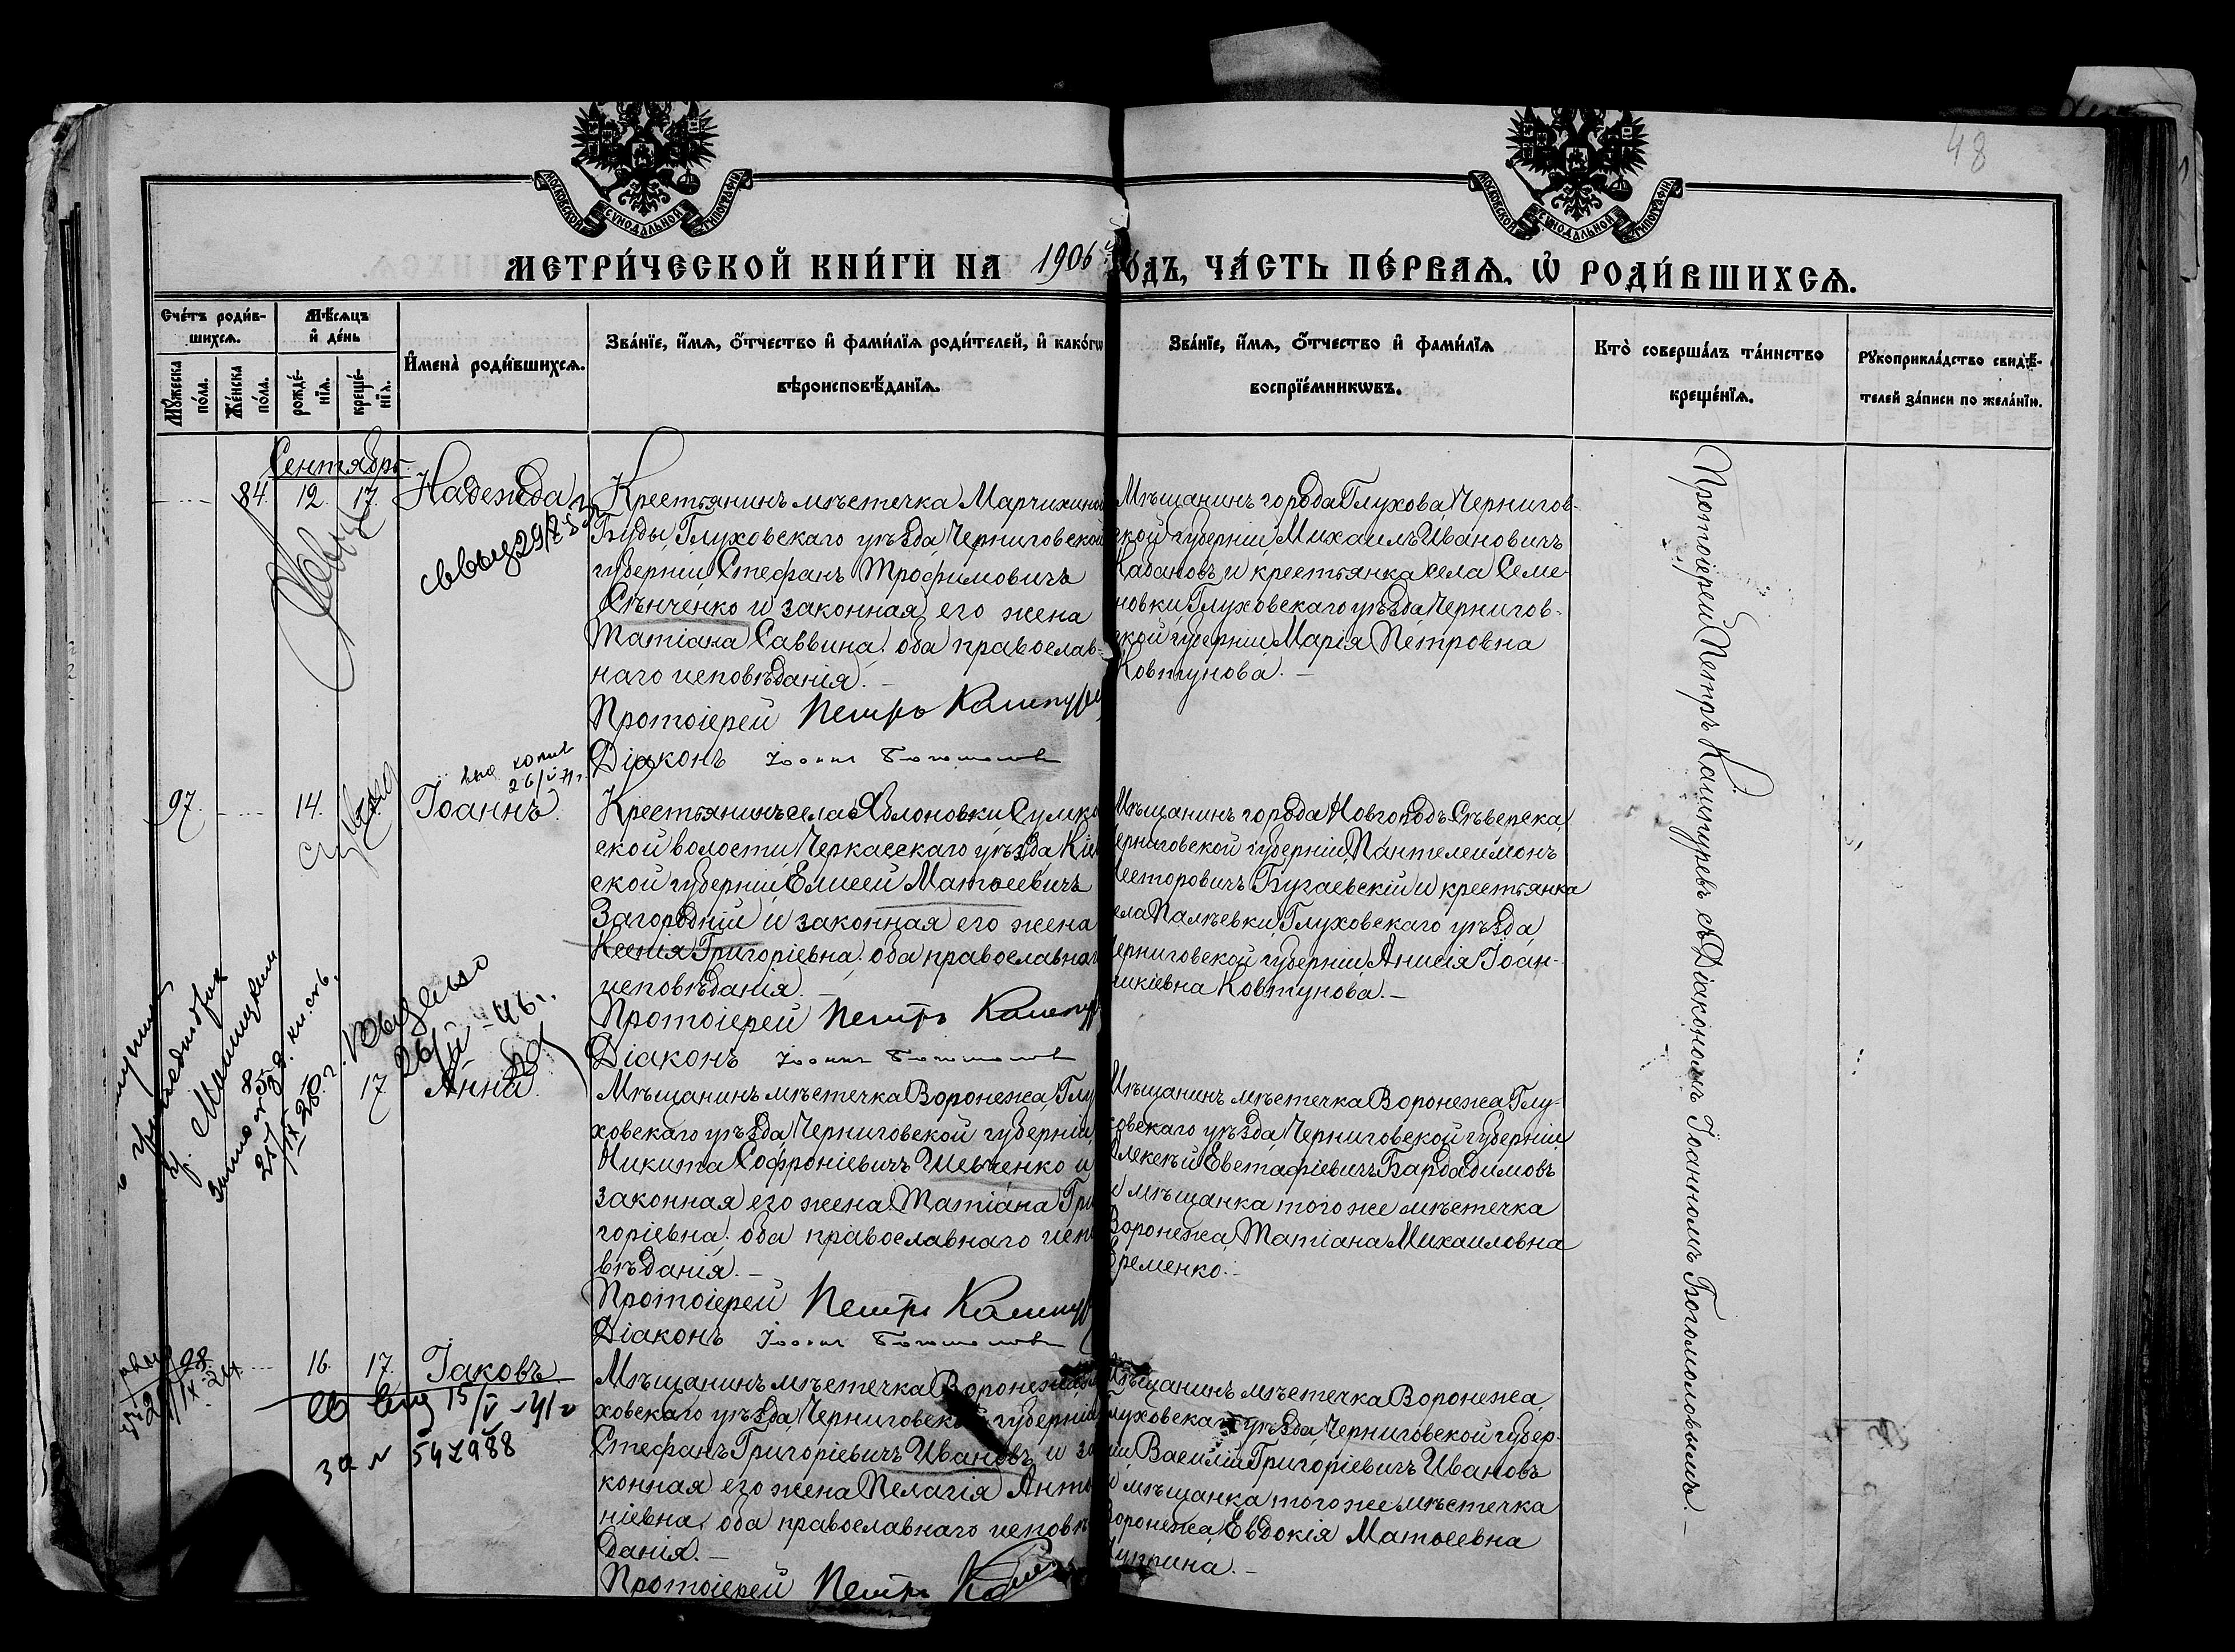 48
МОСКОВСКОЙ СѴНОДАЛЬНОЙ ТИПОГРАФІИ
МОСКОВСКОЙ СѴНОДАЛЬНОЙ ТИПОГРАФІИ
МЕТРИ́ЧЕСКОЙ КНИ́ГИ НА 1906й
ГО́ДЪ, ЧА́СТЬ ПЕ́РВАѦ, Ѡ҆ РОДИ́ВШИХСѦ.
Сче́тъ роди́в-
шихсѧ.
Мѣ́сѧцъ
и҆ де́нь
Мꙋ́жеска
по́ла.
Же́нска
по́ла.
рожде́-
нїѧ.
креще́-
нїѧ.
И҆мена̀ роди́вшихсѧ.
Зва́нїе, и҆́мѧ, ѻ҆́тчество и҆ фами́лїѧ роди́телей, и҆ како́гѡ
вѣроисповѣ́данїѧ.
Зва́нїе, и҆́мѧ, ѻ҆́тчество и҆ фами́лїѧ
воспрїе́мникѡвъ.
Кто̀ соверша́лъ та́инство
креще́нїѧ.
Рꙋкоприкла́дство свидѣ́-
телей за́писи по жела́нїю.
Сентябрь.
84. 12. 17. Надежда
Крестьянинъ мѣстечка Марчихиной
Буды, Глуховскаго уѣзда, Черниговской
губерніи, Стефанъ Трофимовичъ
Сѣнченко и законная его жена
Татіана Саввина; оба православ-
наго исповѣданія.
Протоіерей Петръ
Діаконъ Іоаннъ Богомоловъ
Мѣщанинъ города Глухова, Чернигов-
ской губерніи, Михаилъ Ивановичъ
Кабановъ и крестьянка села Семе-
новки, Глуховскаго уѣзда, Чернигов-
ской губерніи, Марія Петровна
Ковтунова.
97. 14. Іоаннъ.
26/V
Крестьянинъ села Яблоновки,
ской волости, Черкасскаго уѣзда, Кіев
ской губерніи, Елисей Матѳеевичъ
Загородній и законная его жена
Ксенія Григоріевна; оба православнаго
исповѣданія.
Протоіерей Петръ
Діаконъ Іоаннъ Богомоловъ
Мѣщанинъ города Новгородъ-Сѣверска,
Черниговской губерніи, Пантелеимонъ
Несторовичъ Бугаевскій и крестьянка
села Палѣевки, Глуховскаго уѣзда,
Черниговской губерніи, Анисія Іоан-
никіевна Ковтунова.
85. 17. Анна.
Мѣщанинъ мѣстечка Воронежа, Глу
ховскаго уѣзда, Черниговской губерніи,
Никита Софроніевичъ Шевченко и
законная его жена Татіана Гри
горіевна; оба православнаго испо
вѣданія.
Протоіерей Петръ
Діаконъ Іоаннъ Богомоловъ
Мѣщанинъ мѣстечка Воронежа, Глу-
ховскаго уѣзда, Черниговской губерніи,
Алексѣй Евстафіевичъ Бардадимовъ
и мѣщанка того же мѣстечка
Воронежа, Татіана Михаиловна
Еременко.
98. 16. 17. Іаковъ
за N 547988
Мѣщанинъ мѣстечка Воронежа, Глу
ховскаго уѣзда, Черниговской губерніи,
Стефанъ Григоріевичъ Ивановъ и за
конная его жена Пелагія Анто
ніевна; оба православнаго исповѣ
данія.
Протоіерей Петръ
Мѣщанинъ мѣстечка Воронежа,
Глуховскаго уѣзда, Черниговской губер-
ніи, Василій Григоріевичъ Ивановъ
и мѣщанка того же мѣстечка
Воронежа, Евдокія Матѳеевна
Протоіерей Петръ Кашпуревъ съ Діакономъ Іоанномъ Богомоловымъ.